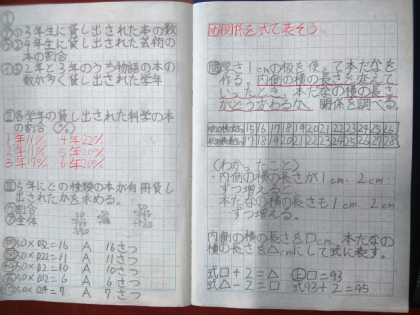 ①
の3年生に貸し出された本の数
の4年生に貸し出された芸術の
本の割合
2年と3年のうち物語の本の
数が多く貸し出された学年
Ⅱ各学年の貸し出された科学の本
の割合（％）
1年11% 4年22%
2年11% 5年20%
3年17% 6年20%
Ⅲ5年にどの種類の本が何冊貸し
出されたかを求める。
割合
全体
80×0.2=16 A 16さつ
A 11さつ
A 10さつ
A 6さつ
A 7さつ
め関係を式で表そう。
問厚さ1cmの板を使って本だなを
作る。内側の横の長さを変えて
いったとき、本だなの横の長さ
がどう変わるか、関係を調べる。
15 16 17 18 19 20 21 22 23 24 25 26
17 18 19 20 21 22 23 24 25 26 27 28
（わかったこと）
・内側の横の長さが1cm、2cm…
ずつ増えると、
本だなの横の長さも1cm、2cm…
ずつ増える。
内側の横の長さを□cm、本だなの
横の長さを△cmにして式に表す。
式□+2=△ □=93
式△-2=□ 式93+2=95